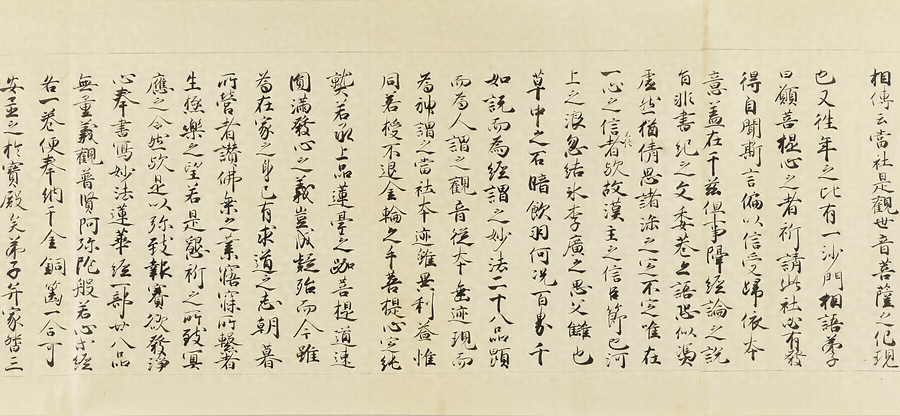 相傳云當社是觀世音菩薩之化現
也又往年之比有一沙門相語弟子
曰願菩提心之者祈請此社必有發
得自聞斯言偏以信受歸依本
意蓋在于茲但事隔經論之說
旨非書紀之文委巷之語恐似憑
虛然猶倩思諸緣之空不空唯在
一心之信不信者歟故漢主之信臣節也河
上之浪忽結氷李廣之思父讎也
草中之石暗飲羽何況百界千
如說而為經謂之妙法二十八品顯
而為人謂之觀音從本垂迹現而
為神謂之當社本迹雖異利益惟
同若授不退金輪之手菩提心定純
熟若承上品蓮臺之跏菩提道速
圓滿發心之義豈成疑殆而今雖
為在家之身已有求道之志朝暮
所營者讚佛乘之業寤寐所繫者
生極樂之望若是懇祈之所致冥
應之令然歟是以弥致報賽欲發淨
心奉書寫妙法蓮華經一部廿八品
無量義觀普賢阿弥陀般若心等經
各一卷便奉納于金銅篋一合可
安置之於寶殿矣弟子并家督三